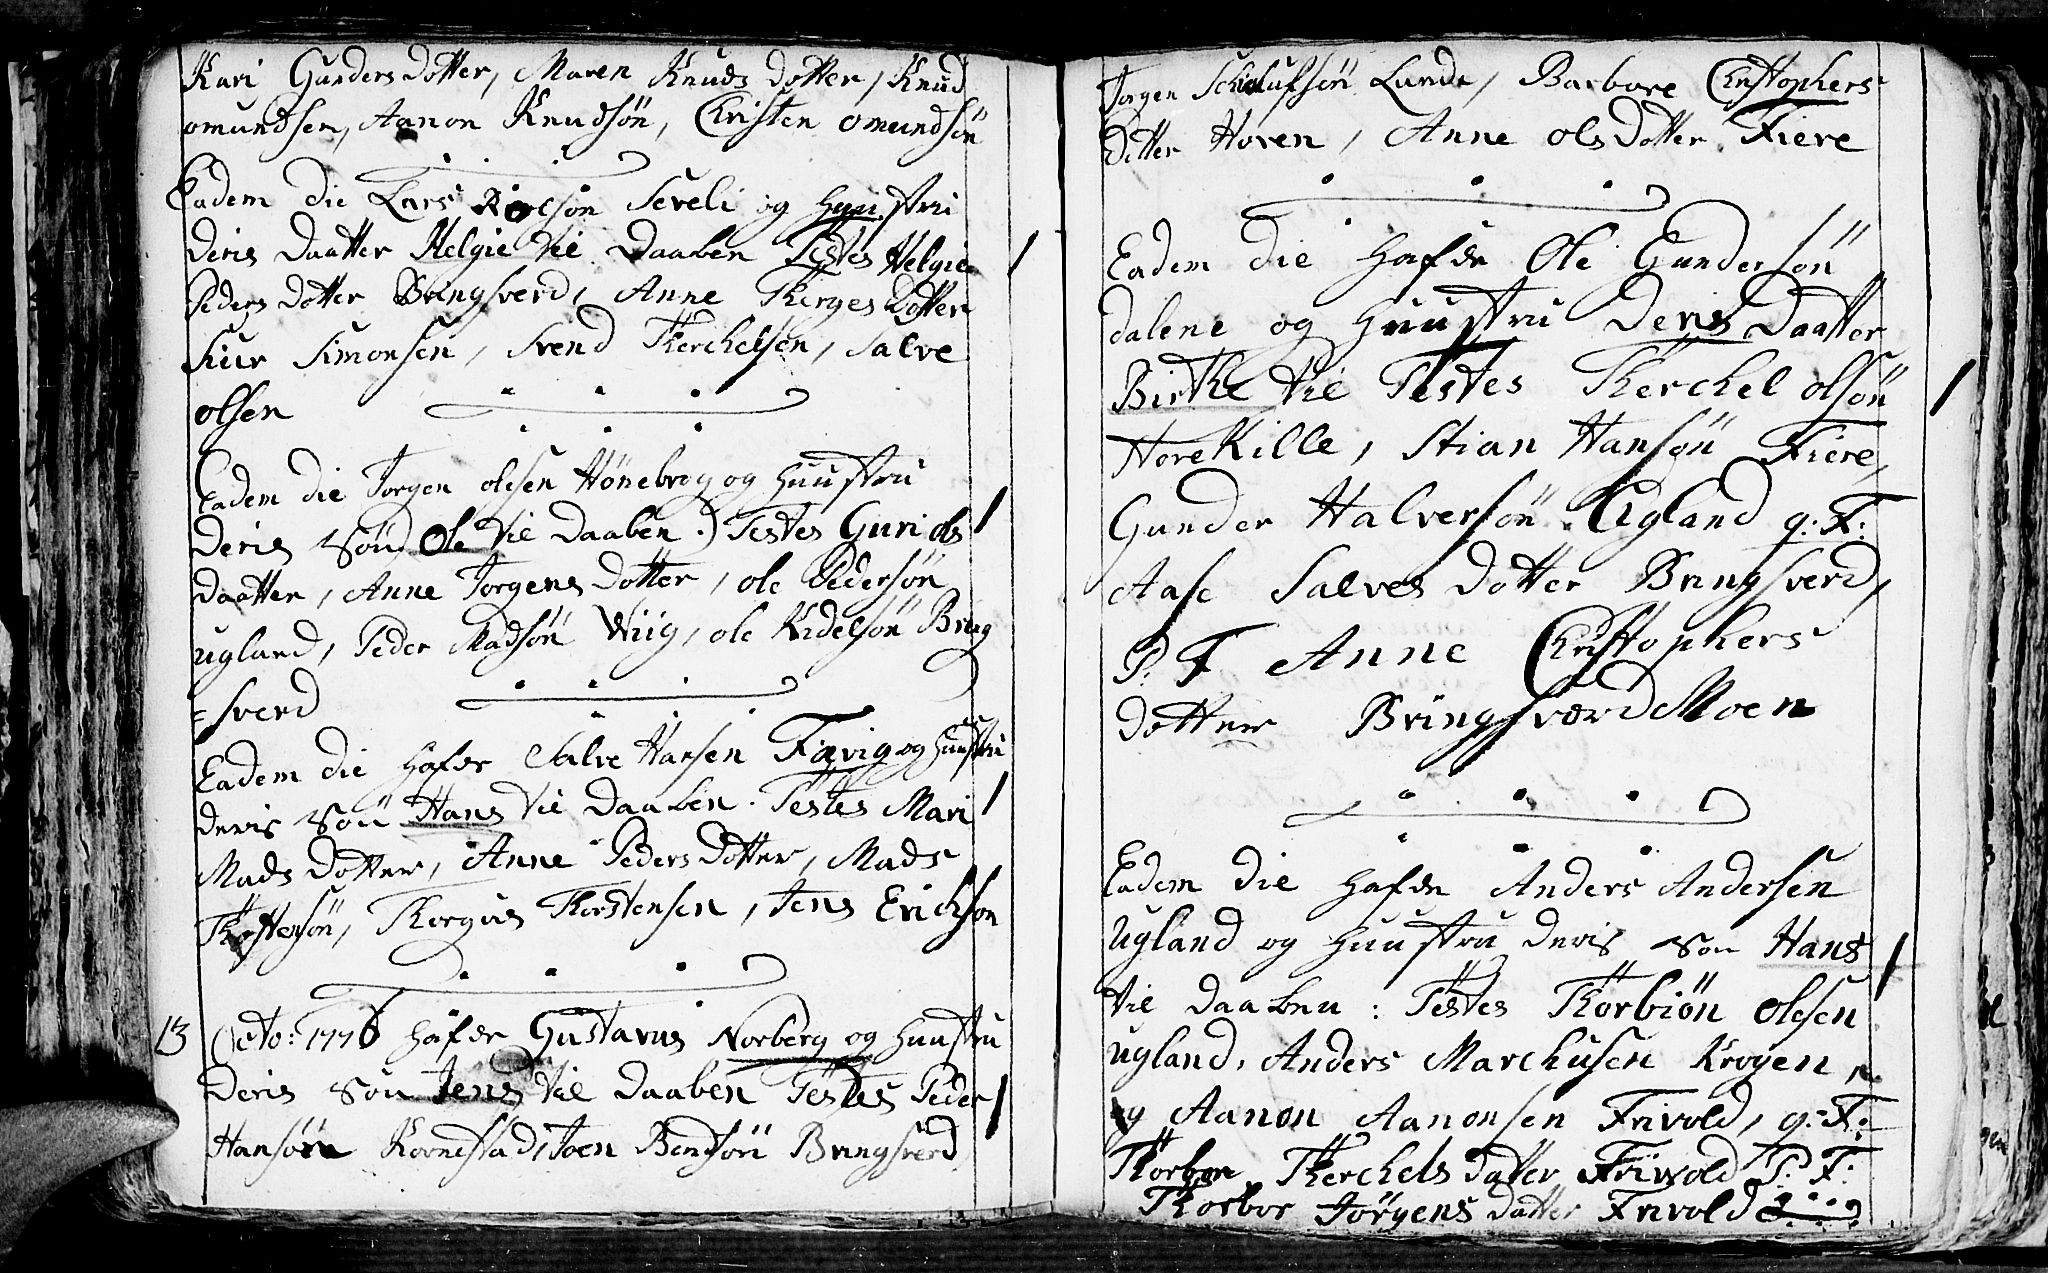 Kari Gunders Dotter, Maren Knuds Dotter, Knud
omundsen, Aanon Knudsøn, Christen omundsøn
Eadem die Lars Roelsøn Seveli og Huustru
Deris Daatter Helgie til Daaben Testes Helgie
Peders Dotter Bringsverd, Anne Therges Dotter
Siur Simonsen, Svend Therchelsen, Salve
olsen
Eadem die Jorgen olesen Hønebrog og Huustru
Deris Søn Ole til Daaben.) Testes Guri ols
Daatter, Anne Jorgens Dotter, ole Pedersøn
ugland, Peder Madsøn Wiig, ole Kidelsøn Bring
=sverd
Eadem die Hafde Salve Hansen Fævig og Huustru
Deris Søn Hans til Daaben. Testes Mari
Mads Dotter, Anne Peders Dotter, Mads
Thostensøn, Thorgius Thorstensen, Jens Erichson
13 Octo: 1776 Hafde Gustavus Norberg og Huustru
Deris Søn Jens til Daaben Testes Peder
Hansøn Rovnestad, Joen Bendsøn Bringsverd
Jorgen Lunde, Barbore Christophers
Dotter Hoven, Anne ols Dotter Fiere
Eadem die Hafde Ole Gundersøn
dalene og Huustru Deris Daatter
Birthe til Testes Therchel olsøn
Horekille, Stian Hansøn Fiere,
Gunder Halversøn Egland q: F:
Aase Salves Dotter Bringsverd,
P. F Anne Christophers
Dotter Bringsværd Moen
Eadem die Hafde Anders Andersen
Ugland og Huustru Deris Søn Hans
til Daaben: Testes Thorbiøn Olesen
ugland, Anders Marchusen Krogen,
og Aanon Aanonsen Frivold, q: F:
Thorbor Therchels Datter Friwold P: F:
Thorbor Jørgens Datter Frivold